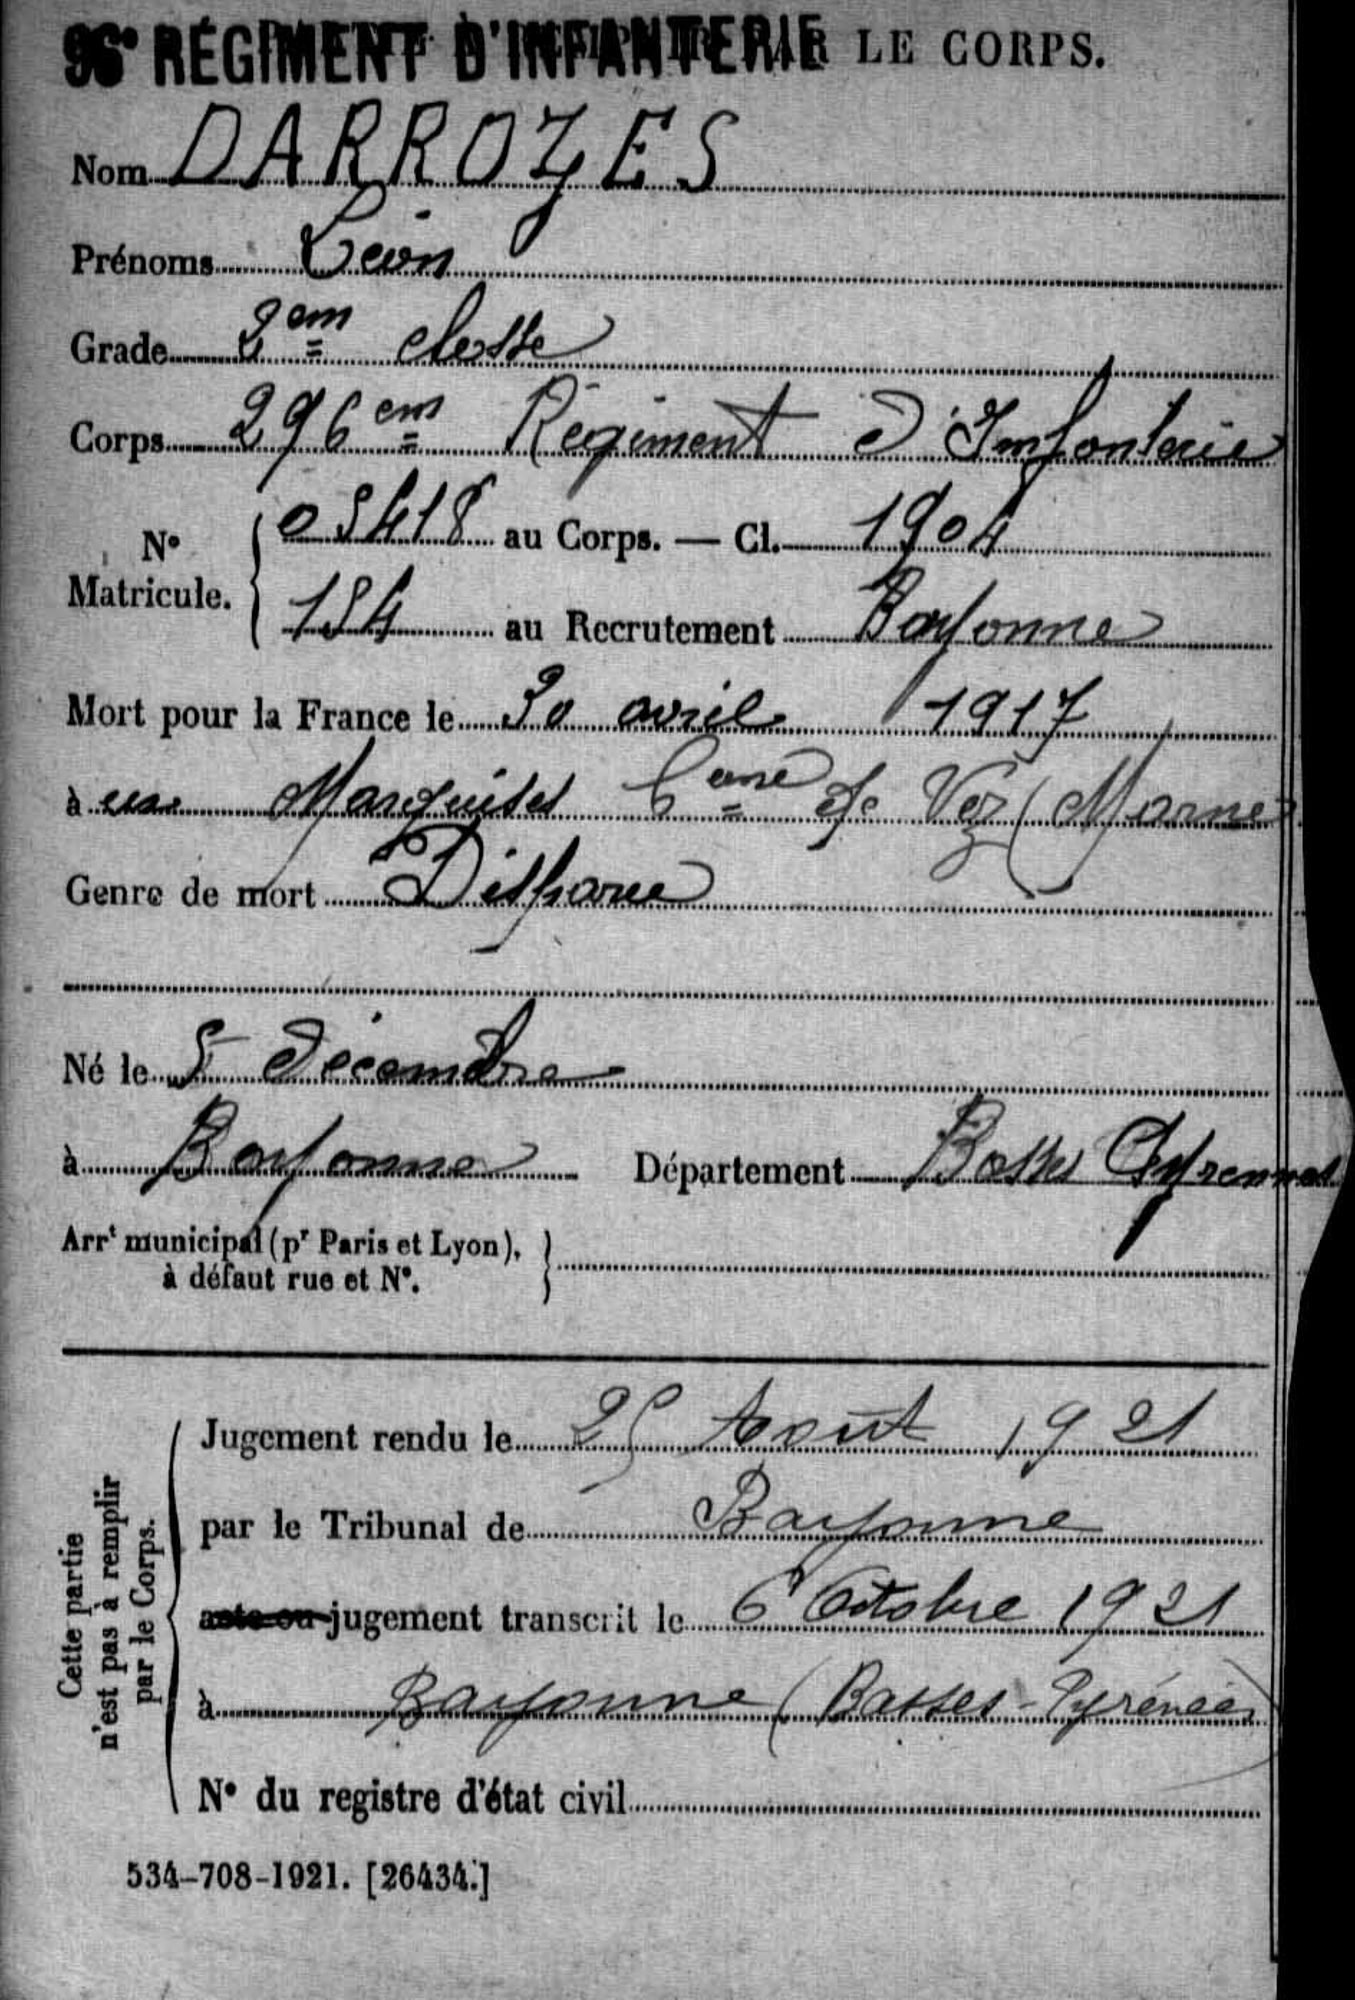 96e RÉGIMENT D'INFANTERIE LE CORPS.
Nom DARROZES
Prénoms Léon
Grade 2em classe
Corps 296em Régiment d'Infanterie
N° Matricule. 05418 au Corps. — Cl. 1904
154 au Recrutement Bayonne
Mort pour la France le 30 avril 1917
à aux Marquises Cne de Vez (Marne)
Genre de mort Disparu
Né le 5 décembre
à Bayonne Département Basses Pyrennees
Arrt municipal (pr Paris et Lyon),
à défaut rue et N°.
Cette partie
n'est pas à remplir
par le Corps.
Jugement rendu le 25 Août 1921
par le Tribunal de Bayonne
acte ou jugement transcrit le 6 Octobre 1921
à Bayonne (Basses-Pyrénées)
N° du registre d'état civil
534-708-1921. [26434.]